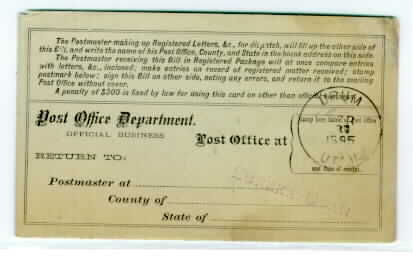 The Postmaster making up Registered Letters, &c., for dispatch, will fill up the other side of
this Bill, and write the name of his Post Office, County, and State in the blank address on this side.
The Postmaster receiving this Bill in Registered Package will at once compare entries
with letters, &c., inclosed; make entries on record of registered matter received; stamp
postmark below; sign this Bill on other side, noting any errors, and return it to the sending
Post Office without cover.
A penalty of $300 is fixed by law for using this card on other than official
Post Office Department.
OFFICIAL BUSINESS
Post Office at
1895
and Date of receipt.
RETURN TO:
Postmaster at
County of
State of